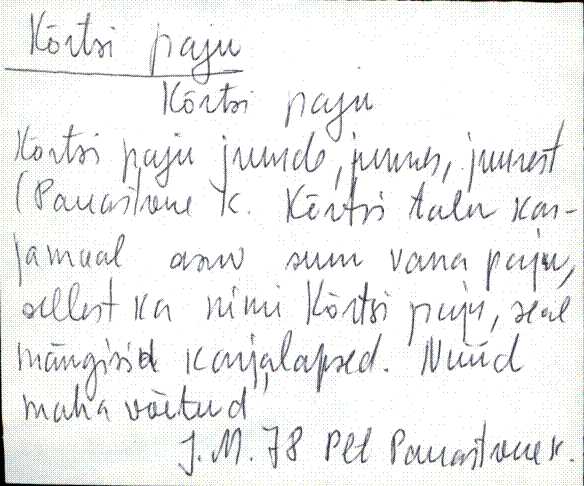 Kõrtsi paju
Kõrtsi paju
Kõrtsi paju juurde, juures, juurest
(Panastvere k. Kõrtsi talu kar-
jamaal asuv suur vana paju,
sellest ka nimi Kõrtsi paju, seal
mängisid karjalapsed. Nüüd
maha võetud
J.M. 78 Plt Panastvere k.